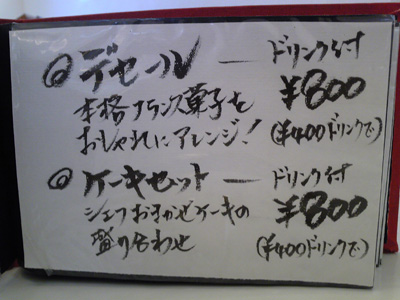 ◎デセール ― ドリンク付
¥800
本格フランス菓子を
おしゃれにアレンジ!
(¥400ドリンクで)
◎ケーキセット ― ドリンク付
¥800
シェフおまかせケーキの
盛り合わせ
(¥400ドリンクで)